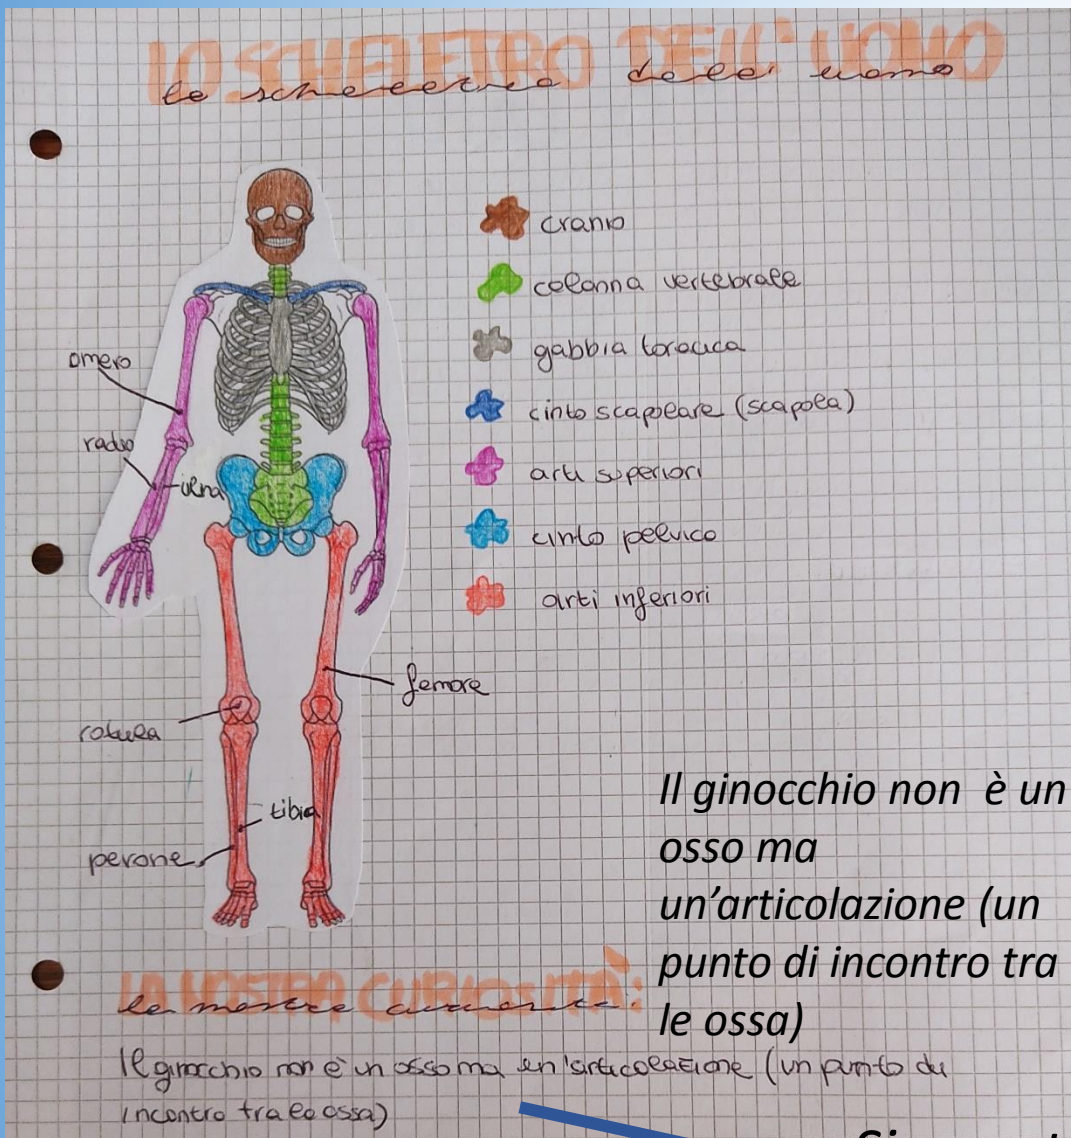 LO SCHELETRO DELL'UOMO
lo scheletro dell'uomo
cranio
colonna vertebrale
gabbia toracica
cinto scapolare (scapola)
arti superiori
cinto pelvico
arti inferiori
omero
radio
ulna
femore
rotula
tibia
perone
Il ginocchio non è un
osso ma
un'articolazione (un
punto di incontro tra
le ossa)
LA NOSTRA CURIOSITÀ:
Il ginocchio non è un osso ma un'articolazione (un punto di
incontro tra le ossa)